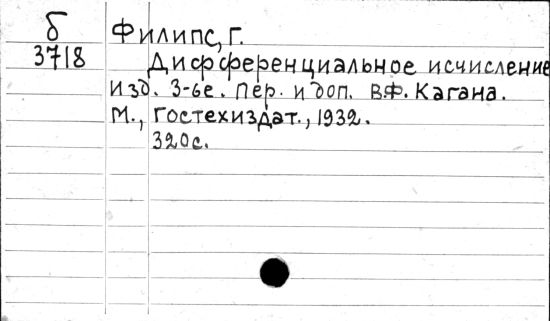 б
3718
Филипс, Г.
Дифференциальное исчисление
Изд. 3-ье. Пер. и доп. В.Ф. Кагана.
М., Гостехиздат., 1932.
320с.